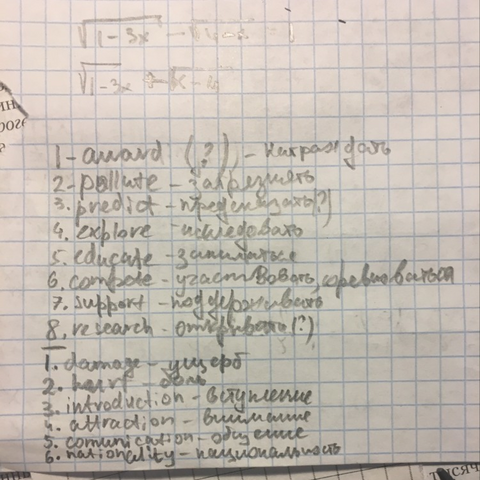 √1-3x
√1-3x
1-award (?) - награждать
2-pollute - загрезнять
3. predict - предсказать(?)
4. explore - иследовать
5. educate - заниматься
6. compete - участвовать, соревноваться
7. support - поддерживать
8. research - открывать(?)
1. damage - ущерб
2. hurt - боль
3. introduction - вступление
4. attraction - внимание
5. comunication - общение
6. nationality - национальность